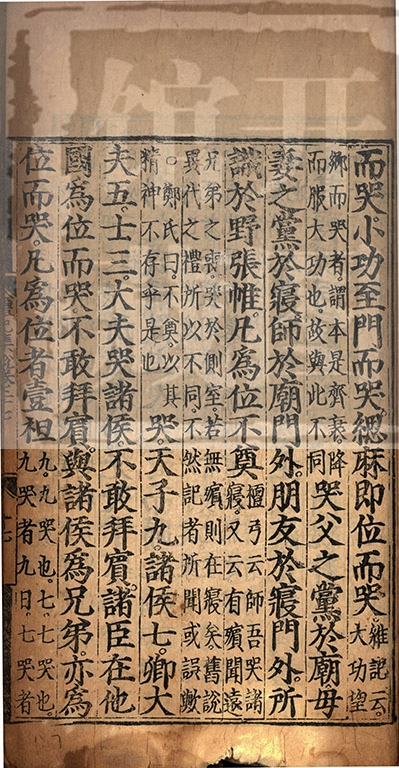 而哭。小功至門而哭。緦麻即位而哭。雜記云。大功望
鄉而哭者。謂本是齊衰。降而服大功也。故與此不同哭父之黨於廟。母
妻之黨於寢。師於廟門外。朋友於寢門外。所
識於野張帷。凡為位不奠檀弓云。師吾哭諸寢。又云。有殯聞遠
兄弟之喪。哭於側室。若無殯則在寢矣。舊說異代之禮。所以不同。不然記者所聞或誤歟
。鄭氏曰。不奠。以其精神不存乎是也哭。天子九。諸侯七。卿大
夫五。士三。大夫哭諸侯。不敢拜賓。諸臣在他
國為位而哭。不敢拜賓。與諸侯為兄弟。亦為
位而哭。凡為位者壹袒九。九哭也。七。七哭也。九哭者九日。七哭者